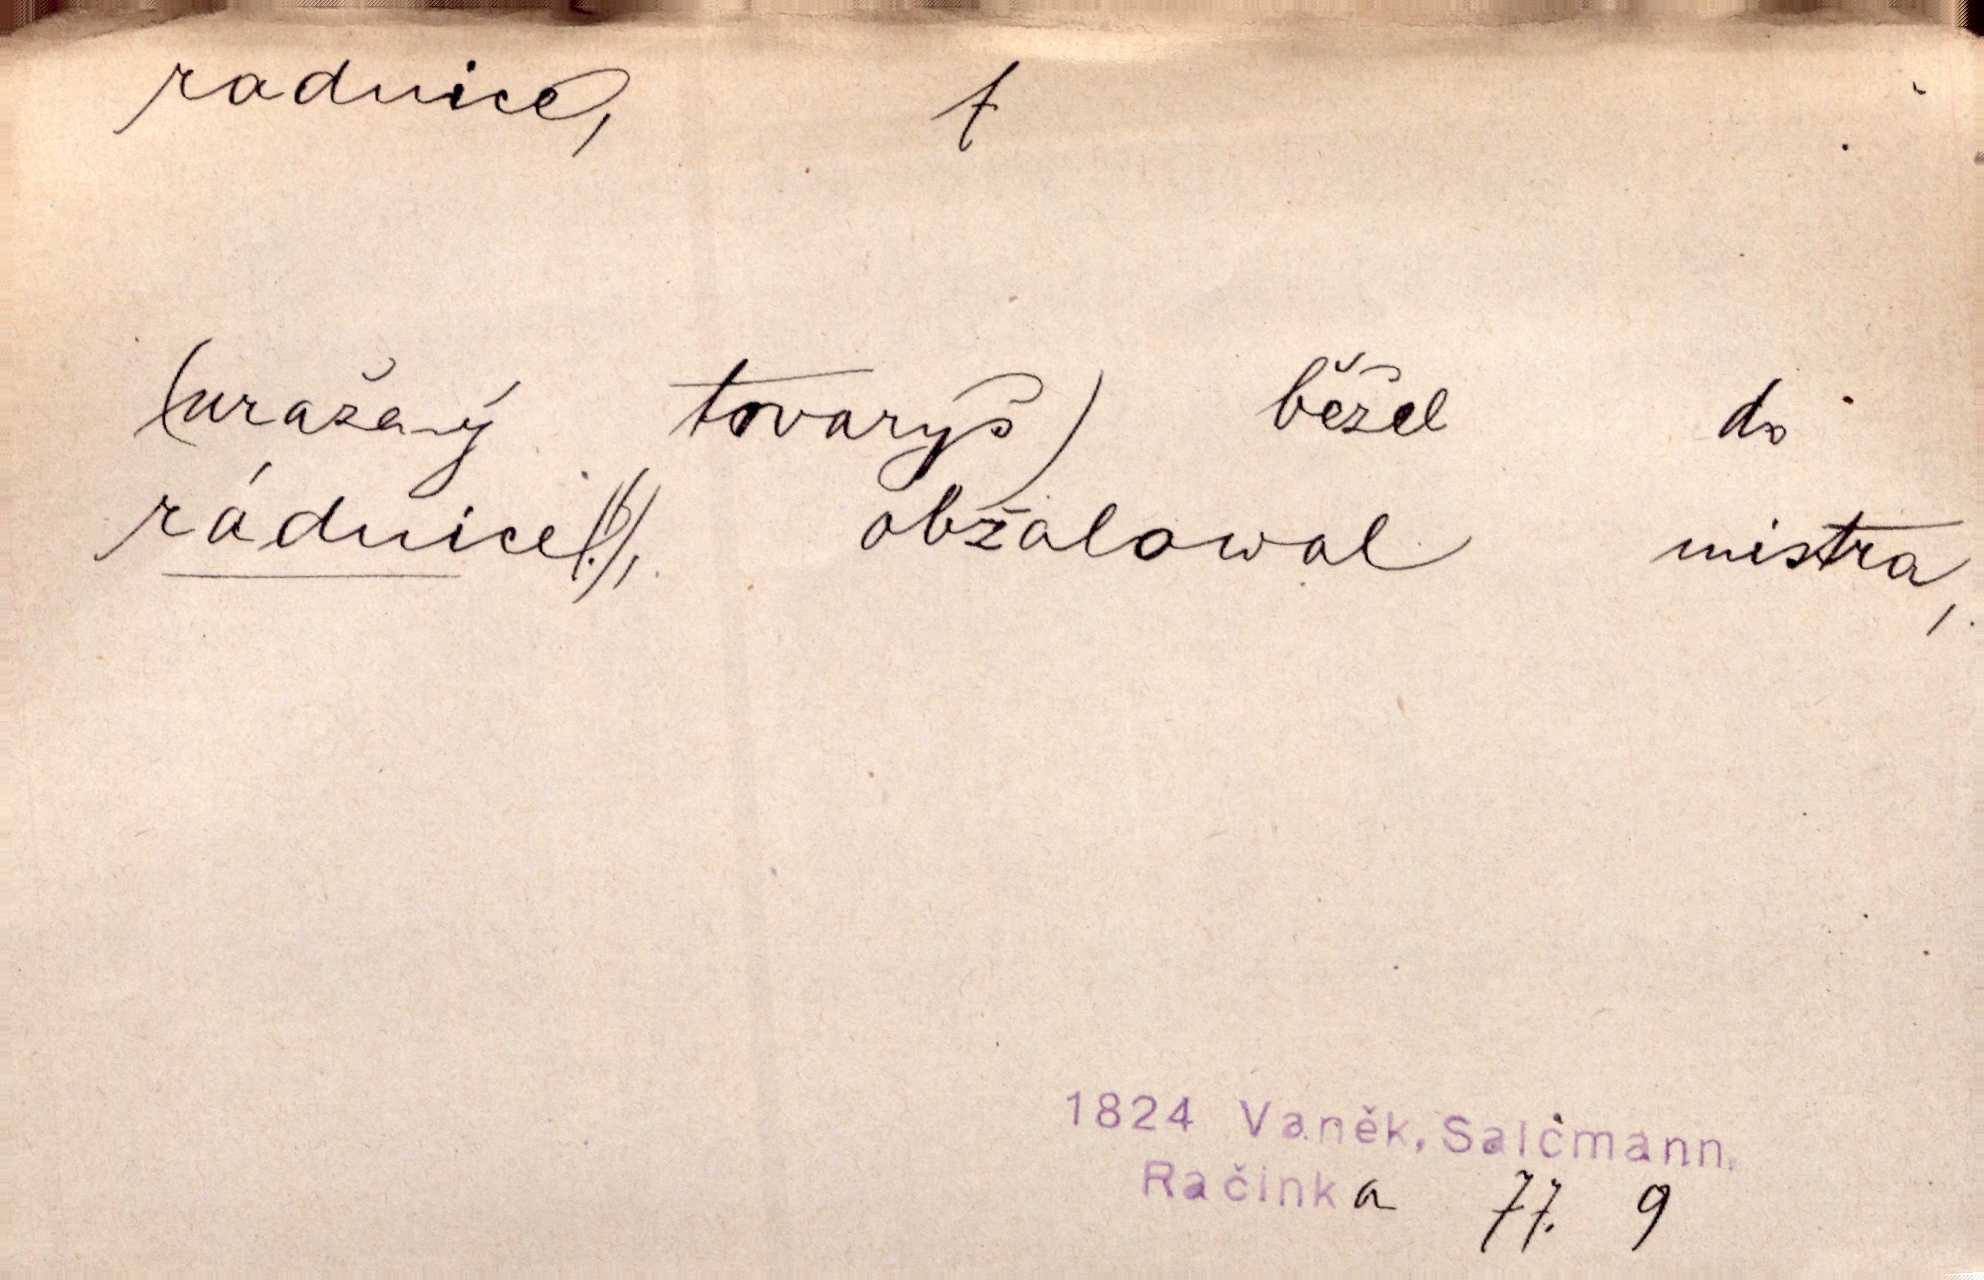 radnice, f
(uražený tovaryš) běžel do
rádnice(!), obžalowal mistra,
1824 Vaněk, Salcmann,
Račinka 77. 9